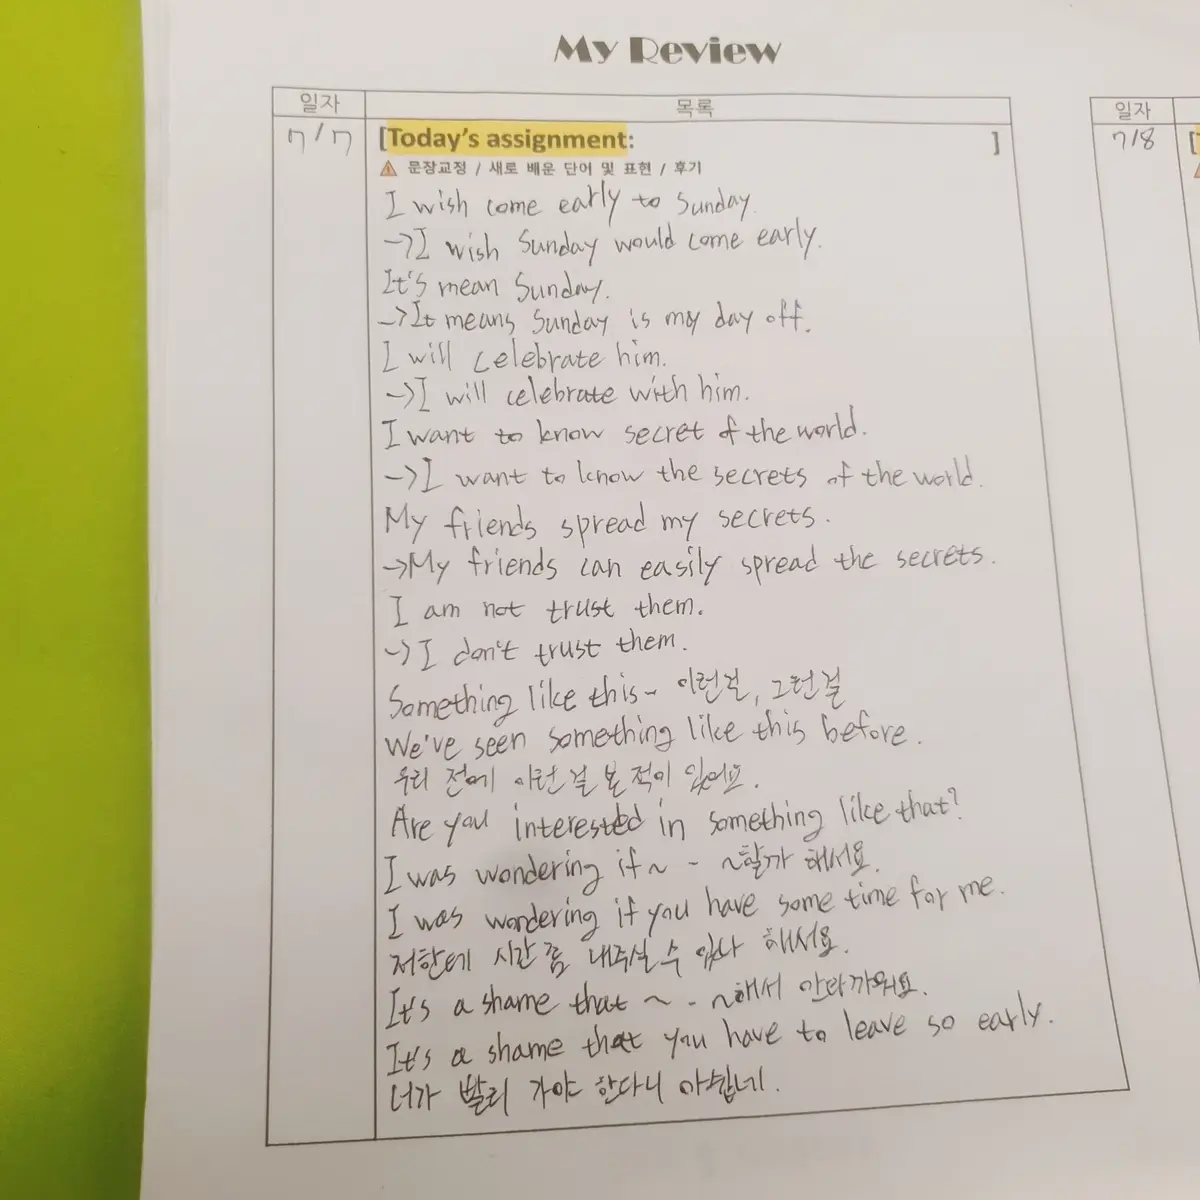 My Review
일자
목록
7/7
[Today's assignment: ]
⚠ 문장교정 / 새로 배운 단어 및 표현 / 후기
I wish come early to Sunday.
→I wish Sunday would come early.
It's mean Sunday.
→It means Sunday is my day off.
I will celebrate him.
→I will celebrate with him.
I want to know secret of the world.
→I want to know the secrets of the world.
My friends spread my secrets.
→My friends can easily spread the secrets.
I am not trust them.
→I don't trust them.
Something like this - 이런걸, 그런걸
We've seen something like this before.
우리 전에 이런걸 본 적이 있어요.
Are you interested in something like that?
I was wondering if ~ - ~할까 해서요.
I was wondering if you have some time for me.
저한테 시간 쫌 내주실 수 있나 해서요.
It's a shame that ~ - ~해서 안타까워요.
It's a shame that you have to leave so early.
너가 빨리 가야 한다니 아쉽네.
일자
7/8
[